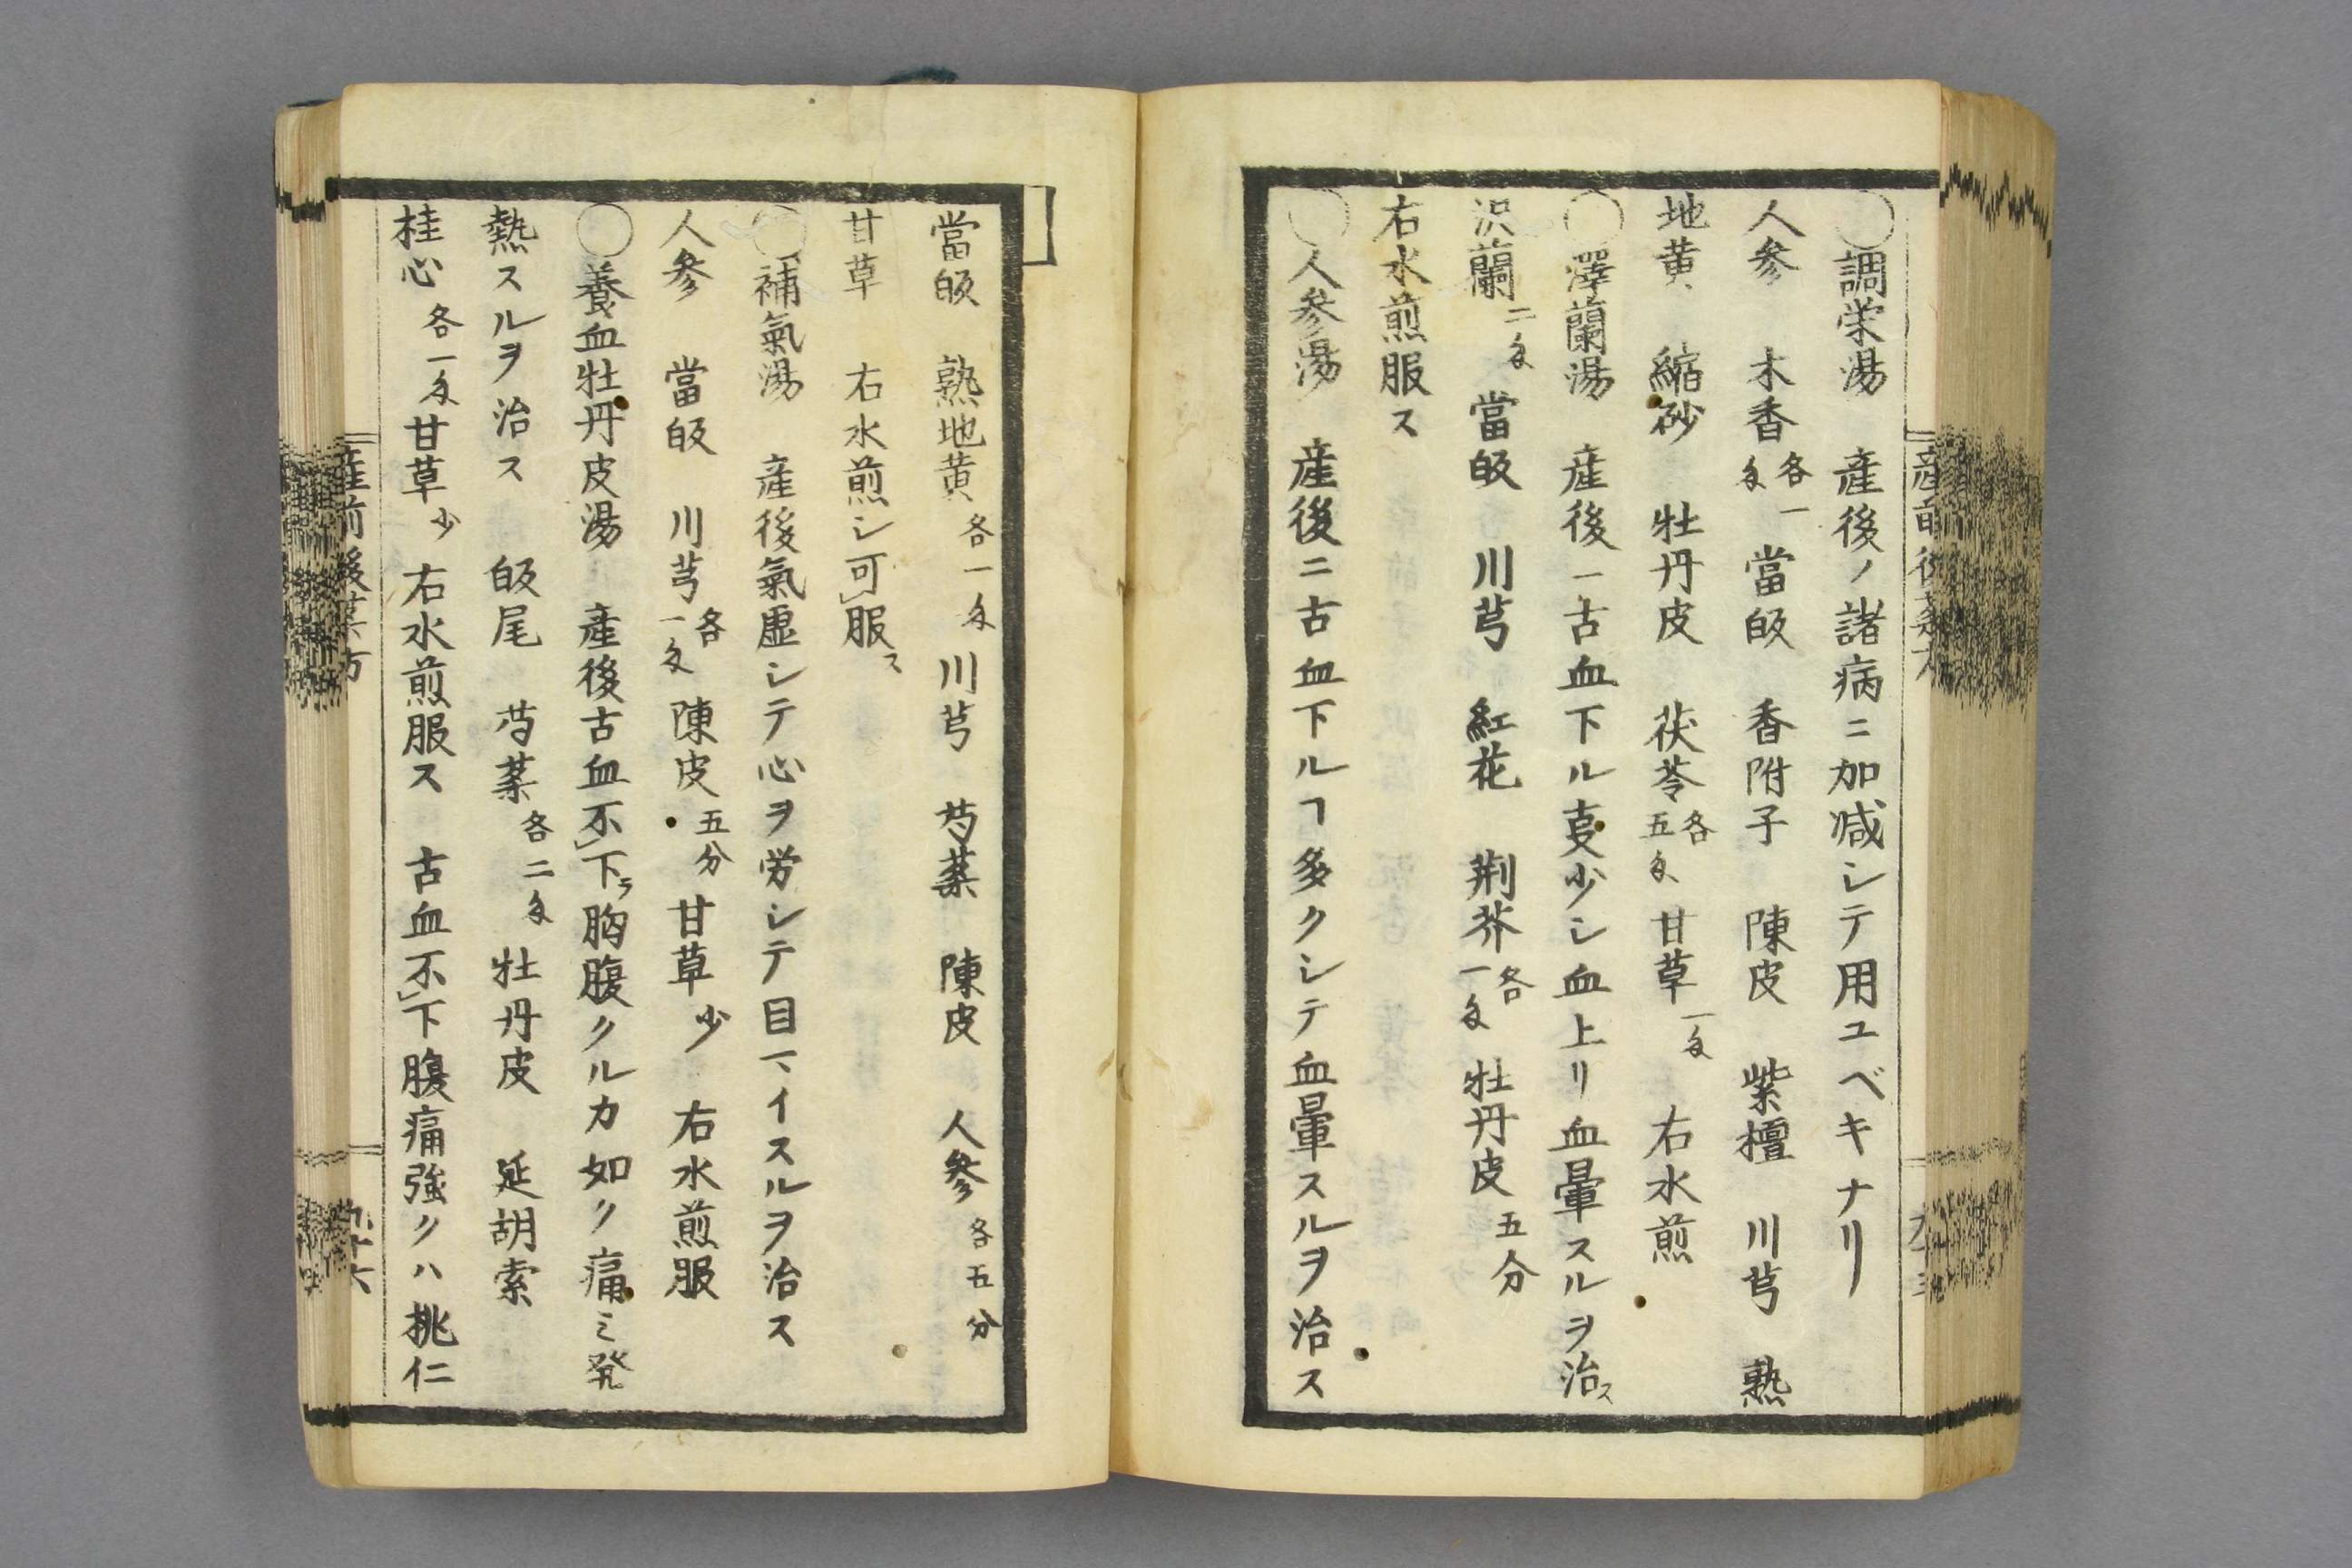 〇調栄湯　産後ノ諸病ニ加減シテ用ユベキナリ
人参　木香各一匁　當皈　香附子　陳皮　紫檀　川芎　熟
地黄　縮砂　牡丹皮　茯苓各五匁　甘草一匁　右水煎
〇澤蘭湯　産後一古血下ル㕝少シ血上リ血暈スルヲ治ス
沢蘭二匁　當皈　川芎　紅花　荆芥各一匁　牡丹皮五分
右水煎服ス
〇人参湯　産後ニ古血下ルヿ多クシテ血暈スルヲ治ス
當皈　熟地黄各一匁　川芎　芍薬　陳皮　人参各五分
甘草　右水煎シ可レ服ス
〇補氣湯　産後氣虚シテ心ヲ労シテ目マイスルヲ治ス
人参　當皈　川芎各一匁　陳皮五分　甘草少　右水煎服
〇養血牡丹皮湯　産後古血不レ下ラ胸腹クルカ如ク痛ミ発
熱スルヲ治ス　皈尾　芍薬各二匁　牡丹皮　延胡索
桂心各一匁　甘草少　右水煎服ス　古血不レ下腹痛強クハ桃仁
産前後薬方
九十六